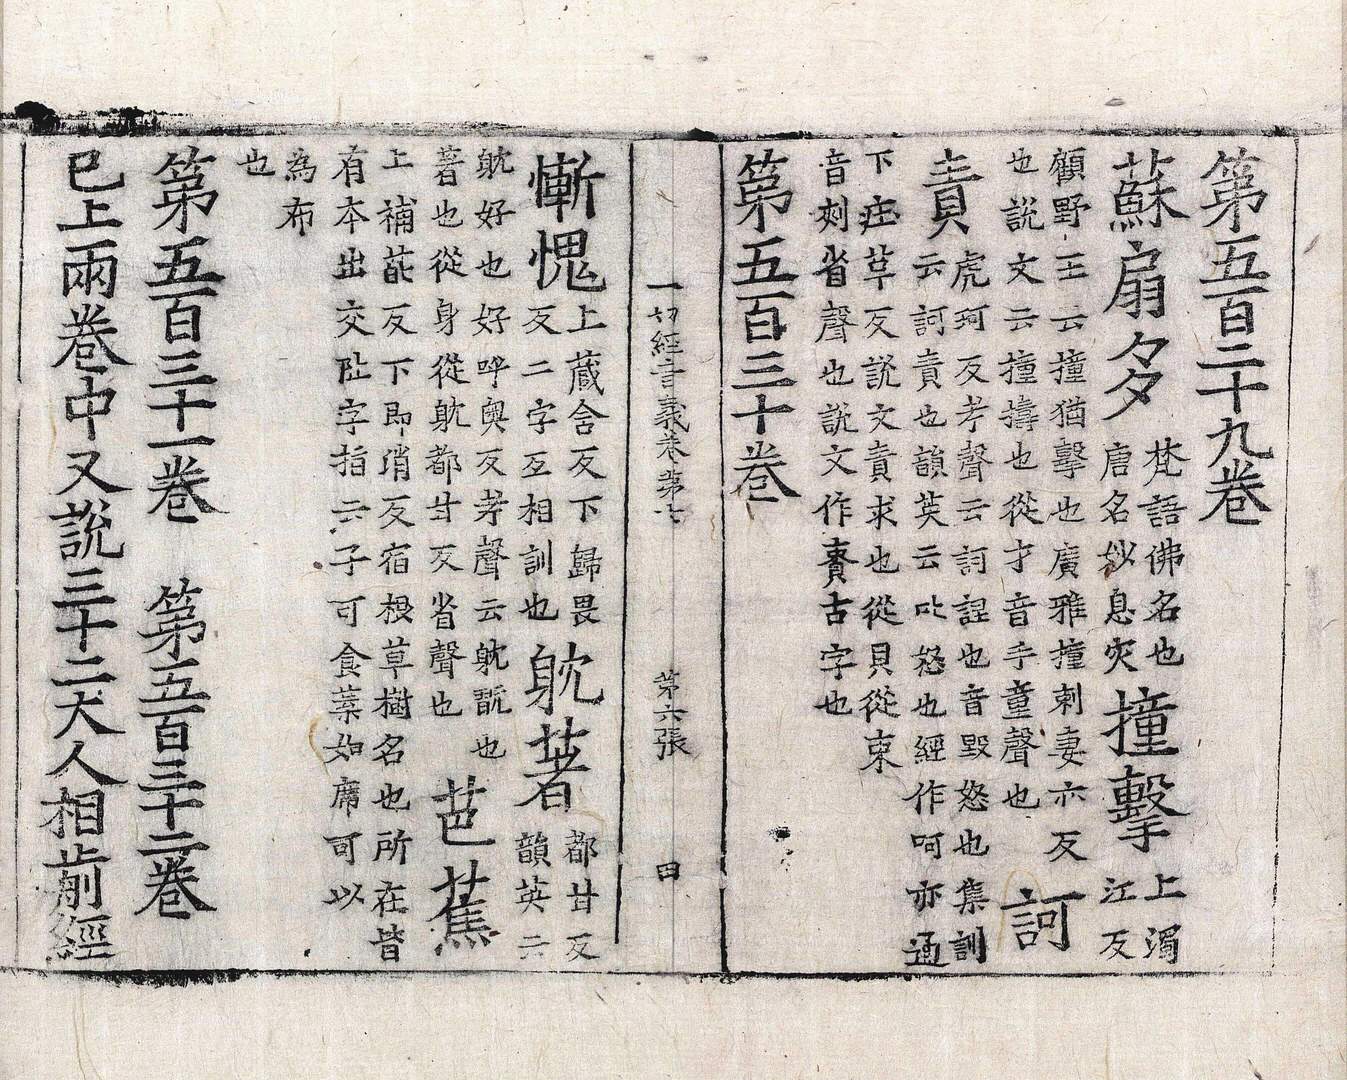 第五百二十九卷
蘇扇多
梵語佛名也
唐名妙息灾
撞擊
上濁
江反
顧野王云撞猶擊也廣雅撞刺妻亦反
也說文云撞擣也從才音手童聲也
訶
責
虎珂反考聲云訶詆也音毀怒也集訓
云訶責也韻英云叱怒也經作呵亦通
下庄草反說文責求也從貝從朿
音刾省聲也說文作賷古字也
第五百三十卷
一切經音義卷第七
第六張
田
慚愧
上蔵含反下歸畏
反二字互相訓也
躭著
都甘反
韻英云
躭好也好呼奧反考聲云躭翫也
著也從身從躭都甘反省聲也
芭蕉
上補葩反下即消反宿根草樹名也所在皆
有本出交阯字指云子可食葉如席可以
為布
也
第五百三十一卷　第五百三十二卷
已上兩卷中又說三十二大人相前經